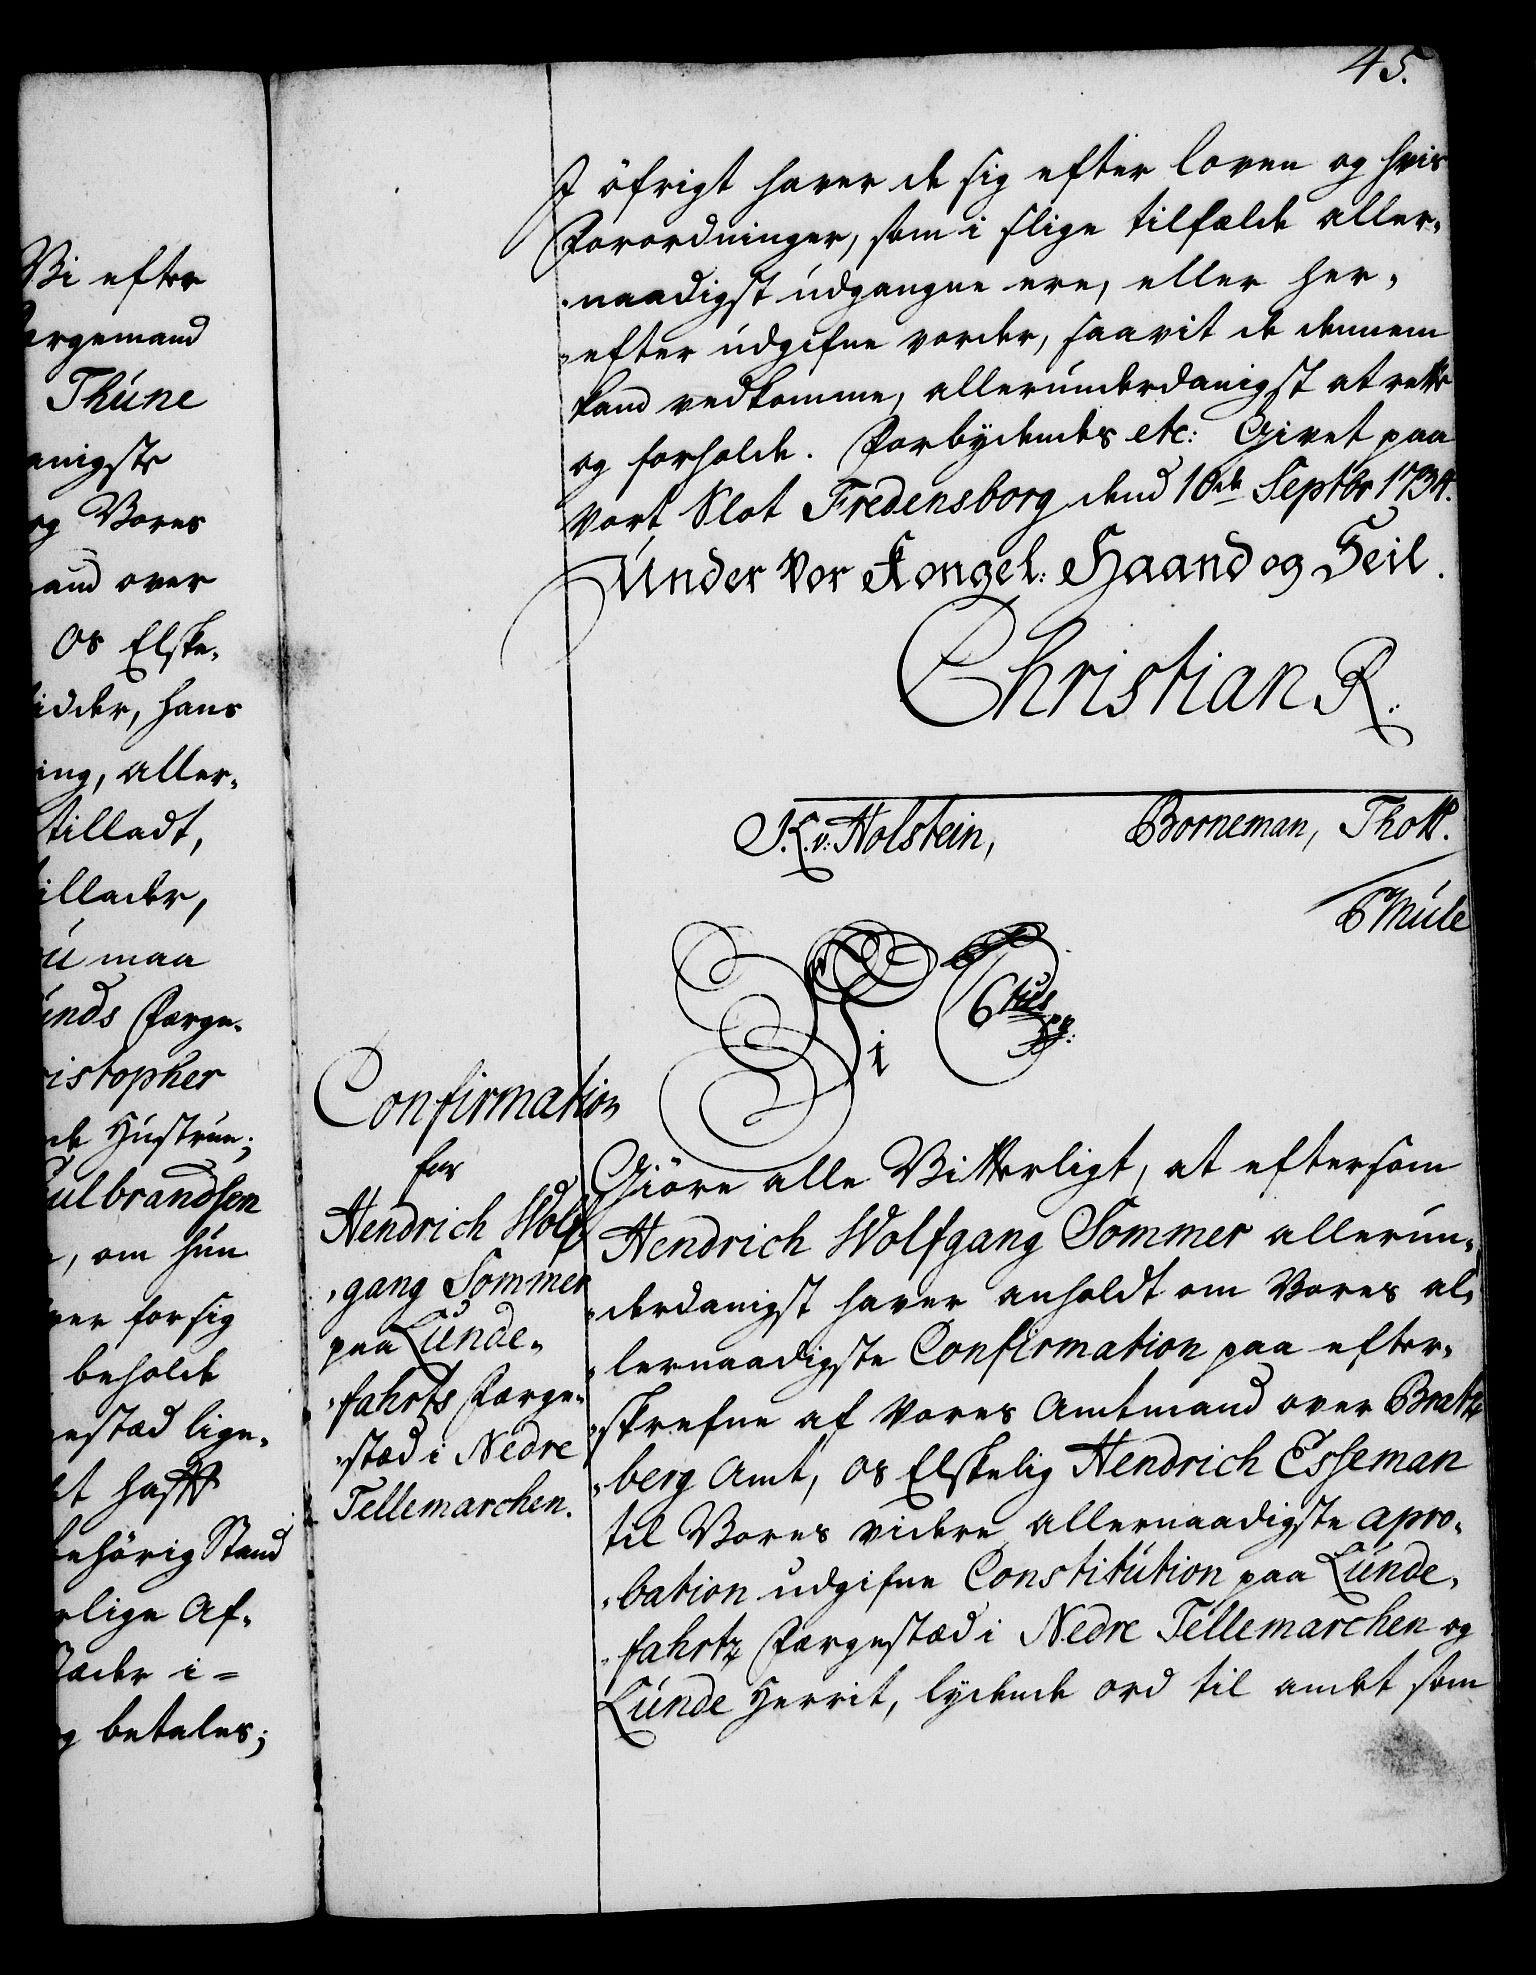 Vi efter
ergemand
Thüne
anigste
og Vores
mand over
Os Elske-
idder, hans
ing, aller-
tilladt,
tillader,
ú maa
únds Færge-
ristopher
de Hústrúe;
Gulbrandsen
, om hún
ver for sig
beholde
estæd lige-
et hafft
behörig Stand
rlige Af-
Stæder i=
og betales;
45.
I öfrigt haver de sig efter loven og hvis
Forordninger, som i slige tilfælde aller-
-naadigst udgangne ere, eller her-
-efter údgifne vorder, saavit de dennem
kand vedkomme, allerúnderdanigst at rette
og forholde. Forbydendes etc: Givet paa
vort Slot Fredensborg dend 10de Septbr 1734.
Únder Vor Kongel: Haand og Seil.
Christian R.
J. L. v: Holstein, Borneman, Thott.
Múle
Vi C 6tus
Confirmation
for
Hendrich Wolf-
-gang Sommer
paa Lúnde-
-fahrts Færge-
-stæd i Nedre
Tellemarchen.
Giöre alle Vitterligt, at eftersom
Hendrich Wolfgang Sommer allerun-
-derdanigst haver anholdt om Vores al-
-lernaadigste Confirmation paa efter-
-skrefne af Vores Amtmand over Bratz-
-berg Amt, Os Elskelig Hendrich Esseman
til Vores videre allernaadigste apro-
-bation udgifne Constitútion paa Lúnde-
-fahrtz Færgestæd i Nedre Tellemarchen og
Lúnde Herrit, lydende ord til andet som